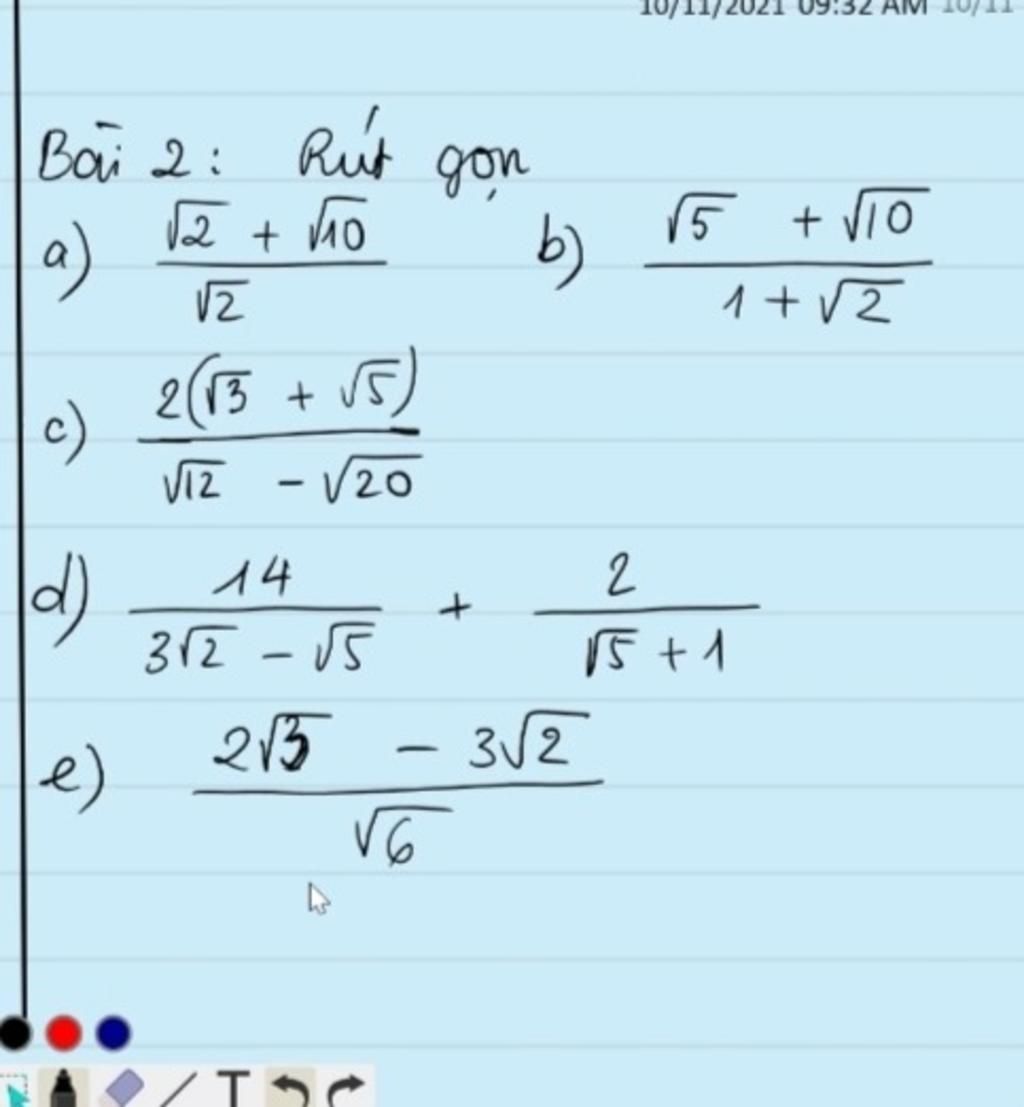 10/11/2021 09:32 AM 10/11
Bài 2: Rút gọn
a) (√2 + √10)/√2 b) (√5 + √10)/(1 + √2)
c) 2(√3 + √5)/(√12 - √20)
d) 14/(3√2 - √5) + 2/(√5 + 1)
e) (2√3 - 3√2)/√6
T